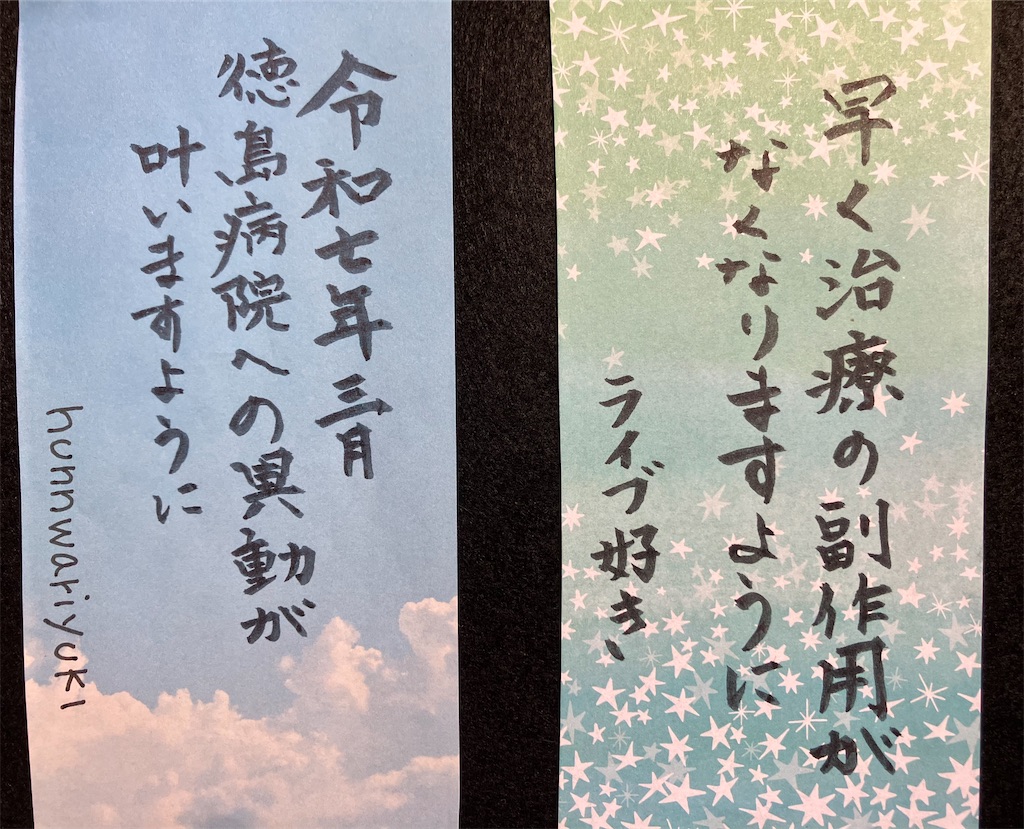 早く治療の副作用が
なくなりますように
ライブ好き
令和七年三月
徳島病院への異動が
叶いますように
hunnwariyuki